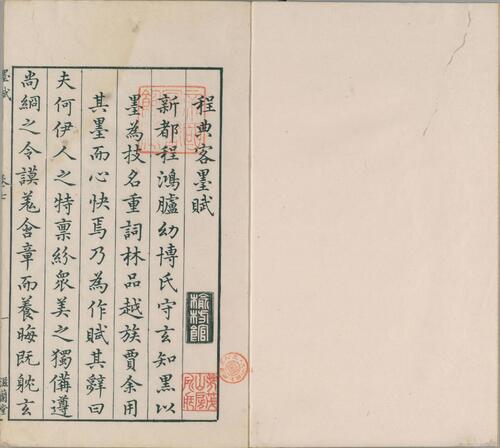 程典客墨賦
新都程鴻臚幼博氏守玄知黑以
墨為技名重詞林品越族賈余用
其墨而心快焉乃為作賦其辭曰
夫何伊人之特稟紛眾美之獨備遵
尚絅之令謨羌含章而養晦既躭玄
墨賦
卷七
一
滋蘭堂